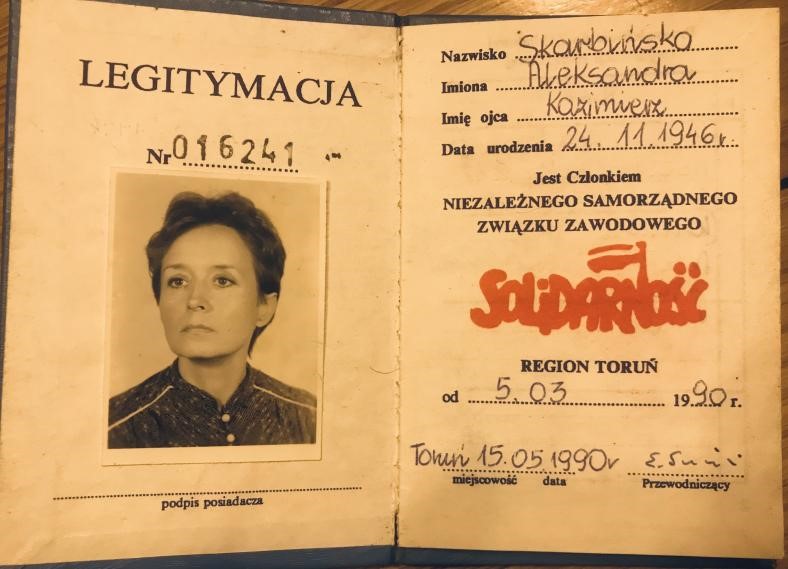 LEGITYMACJA
Nr 016241
podpis posiadacza
Nazwisko Skarbińska
Imiona Aleksandra
Imię ojca Kazimierz
Data urodzenia 24. 11. 1946 r.
Jest Członkiem
NIEZALEŻNEGO SAMORZĄDNEGO
ZWIĄZKU ZAWODOWEGO
SOLIDARNOŚĆ
REGION TORUŃ
od 5. 03 1990 r.
Toruń 15.05.1990r
miejscowość data Przewodniczący